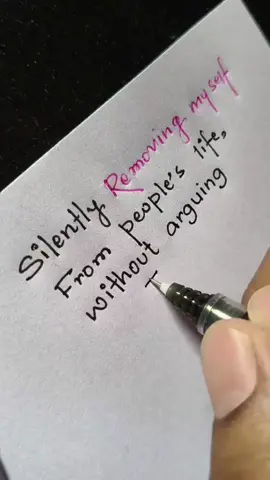 Silently Removing myself
From people's life,
without arguing